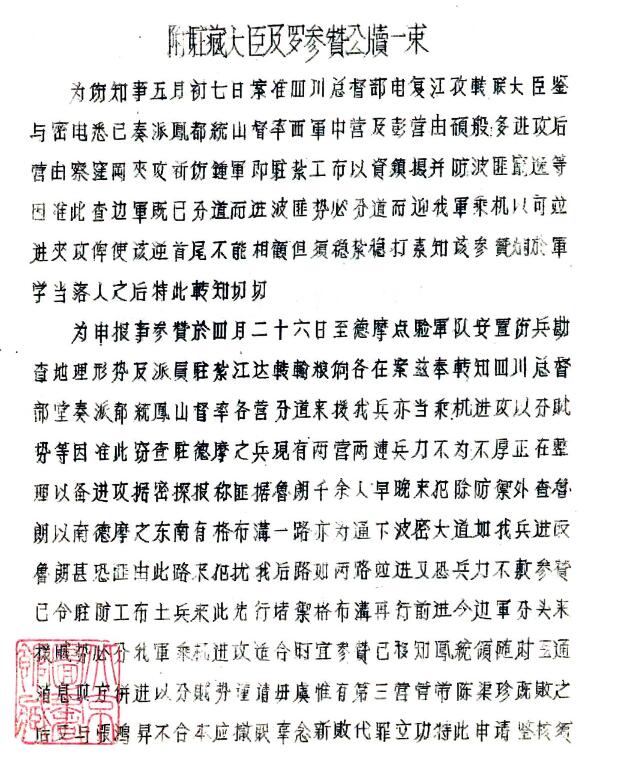 附駐藏大臣及罗参贊公牘一束
为飭知事五月初七日案准四川总督部电复江孜轉联大臣鉴
与密电悉已奏派鳳都統山督率西軍中营及彭营由碩般多进攻后
营由察窪岡夾攻祈飭鍾軍即駐紮工布以資鎮摄并防波匪竄逸等
因准此查边軍既已分道而进波匪势必分道而迎我軍乘机以可並
进夾攻俾使该逆首尾不能相顧但须稳紮稳打素知该参贊嫻於軍
学当落人之后特此轉知切切
为申报事参贊於四月二十六日至德摩点驗軍队安置伤兵勘
查地理形势及派員駐紮江达轉輸粮餉各在案兹奉轉知四川总督
部堂奏派都統鳳山督率各营分道来援我兵亦当乘机进攻以分贼
势等因准此窃查駐德摩之兵现有两营两連兵力不为不厚正在整
理以备进攻据密探报称匪据魯朗千余人早晚来犯除防禦外查魯
朗以南德摩之东南有格布溝一路亦为通下波密大道如我兵进攻
魯朗甚恐匪由此路来犯扰我后路如两路並进又恐兵力不敷参贊
已令駐防工布土兵来此先行堵禦格布溝再行前进今边軍分头来
援贼势必分我軍乘机进攻适合时宜参贊已移知鳳統領随时互通
消息與方併进以分贼势望请毋虞惟有第三营管帶陈渠珍既敗之
后又与張鴻昇不合本应撤职辜念新敗代罪立功特此申请鉴核须